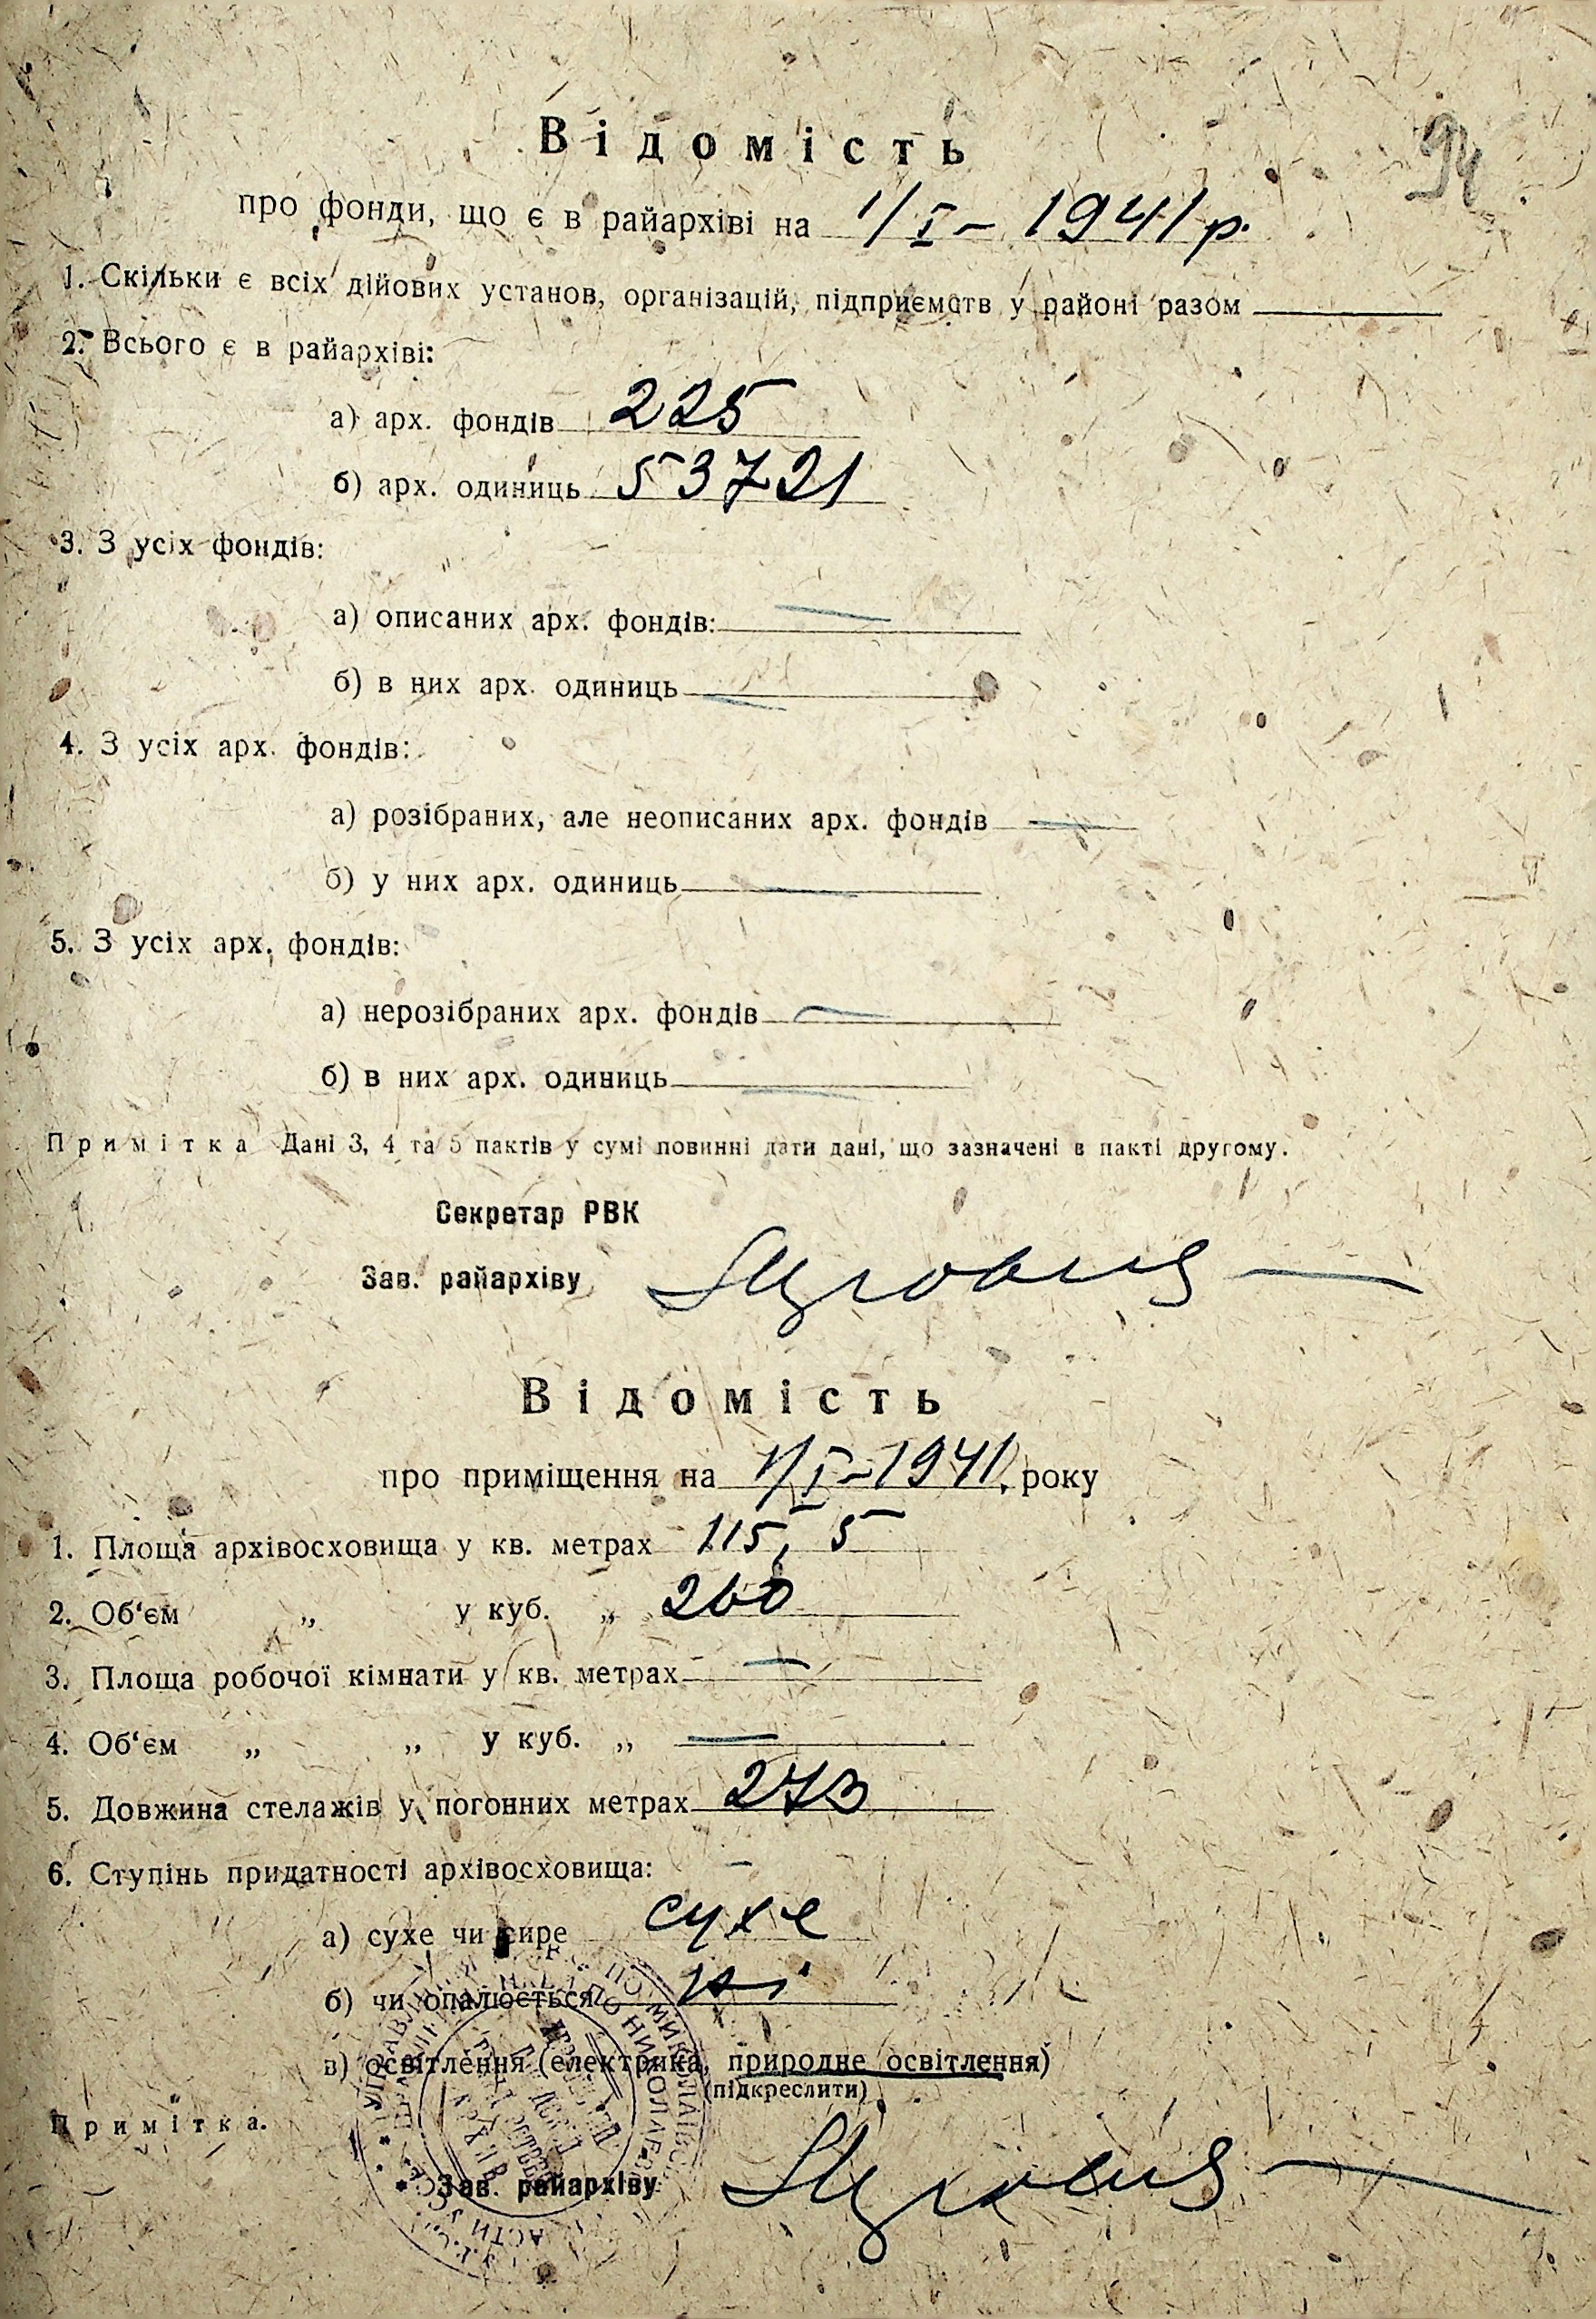 94
Відомість
про фонди, що є в райархіві на 1/I – 1941 р.
1. Скільки є всіх дійових установ, організацій, підприємств у районі разом
2. Всього є в райархіві:
а) арх. фондів 225
б) арх. одиниць 53721
3. З усіх фондів:
а) описаних арх. фондів: —
б) в них арх. одиниць —
4. З усіх арх. фондів:
а) розібраних, але неописаних арх. фондів —
б) у них арх. одиниць —
5. З усіх арх. фондів:
а) нерозібраних арх. фондів —
б) в них арх. одиниць —
Примітка Дані 3, 4 та 5 пактів у сумі повинні дати дані, що зазначені в пакті другому.
Секретар РВК
Зав. райархіву
Відомість
про приміщення на 1/I – 1941 року
1. Площа архівосховища у кв. метрах 115,5
2. Об'єм „ у куб. „ 260
3. Площа робочої кімнати у кв. метрах —
4. Об'єм „ „ у куб. „ —
5. Довжина стелажів у погонних метрах 273
6. Ступінь придатності архівосховища: –
а) сухе чи сире сухе
б) чи опалюється ні
в) освітлення (електрика, природне освітлення)
(підкреслити)
Примітка.
Зав. райархіву